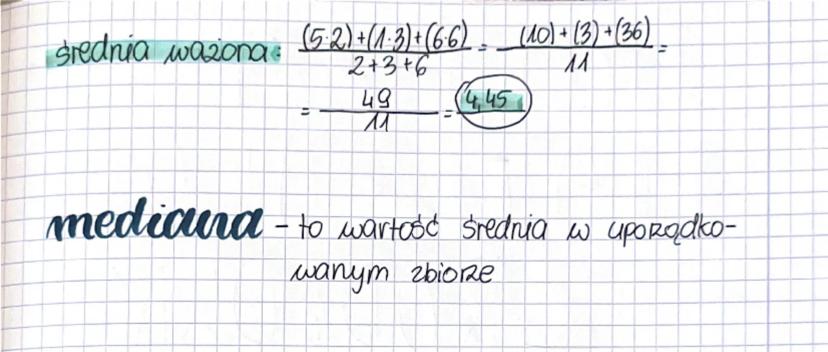 średnia ważona: (5·2)+(1·3)+(6·6) / 2+3+6 = (10)+(3)+(36) / 11 =
= 49 / 11 = 4,45
mediana - to wartość średnia w uporządko-
wanym zbiorze